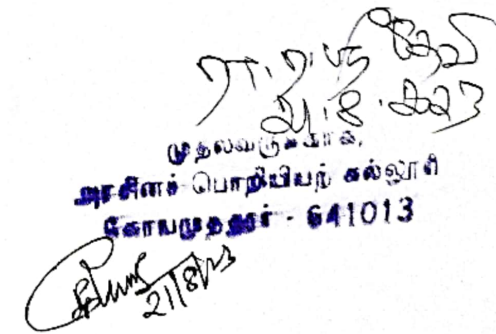 தேவி
21.8.2023
முதல்வருக்காக,
அரசினர் பொறியியற் கல்லூரி
கோயமுத்தூர் - 641013
21/8/23